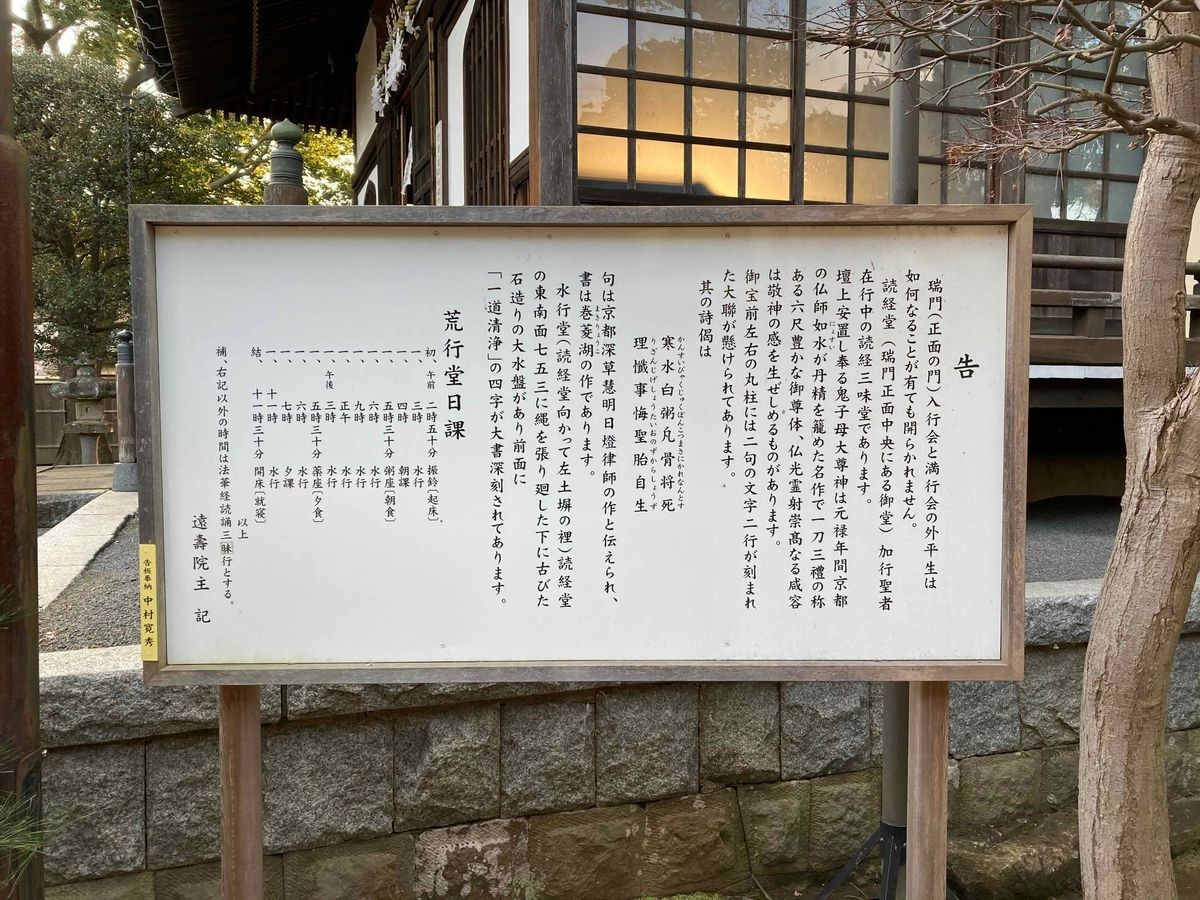 告
瑞門(正面の門)入行会と満行会の外平生は
如何なることが有ても開らかれません。
読経堂(瑞門正面中央にある御堂)加行聖者
在行中の読経三昧堂であります。
壇上安置し奉る鬼子母大尊神は元禄年間京都
の仏師如水が丹精を籠めた名作で一刀三禮の称
にょすい
ある六尺豊かな御尊体、仏光霊射崇髙なる咸容
は敬神の感を生ぜしめるものがあります。
御宝前左右の丸柱には二句の文字二行が刻まれ
た大聯が懸けられてあります。
其の詩偈は
かんすいびゃくじゅくぼんこつまさにかれなんとす
寒水白粥凡骨将死
りざんじげしょうたいおのずからしょうず
理懺事悔聖胎自生
句は京都深草慧明日燈律師の作と伝えられ、
書は巻菱湖の作であります。
まきりょうこ
水行堂(読経堂向かって左土塀の裡)読経堂
の東南面七五三に縄を張り廻した下に古びた
石造りの大水盤があり前面に
「一道清浄」の四字が大書深刻されてあります。
荒行堂日課
初、午前 二時五十分 振鈴〔起床〕、
一、三時 水行
一、四時 朝課
一、五時三十分 粥座〔朝食〕
一、六時 水行
一、九時 水行
一、正午 水行
一、午後 三時 水行
一、五時三十分 薬座〔夕食〕
一、六時 水行
一、七時 夕課
一、十一時 水行
結、十一時三十分 開床〔就寝〕
以上
補、右記以外の時間は法華経読誦三昧行とする。
遠壽院主 記
告板奉納 中村寛秀